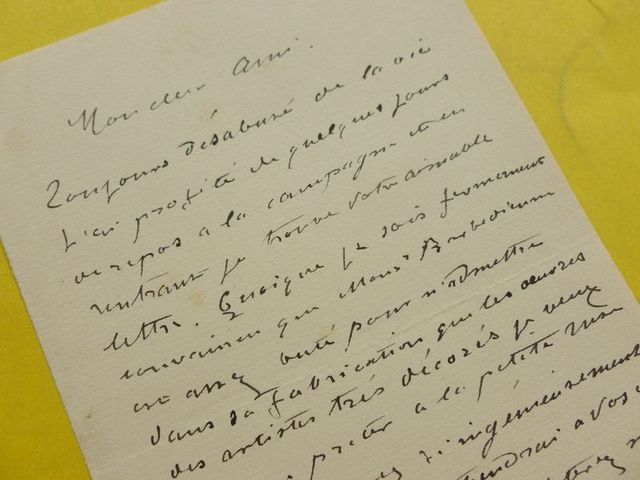 Mon cher Ami.
Toujours désabusé de la vie
j'ai profité de quelques jours
de repos a la campagne et en
rentrant je trouve votre aimable
lettre. Quoique je sois fermement
convaincu que Monsr Barbedienne
est assez outé pour n'admettre
dans sa fabrication que les œuvres
des artistes très décorés je veux
preter a la petite ruse
si ingenieusement
a vos